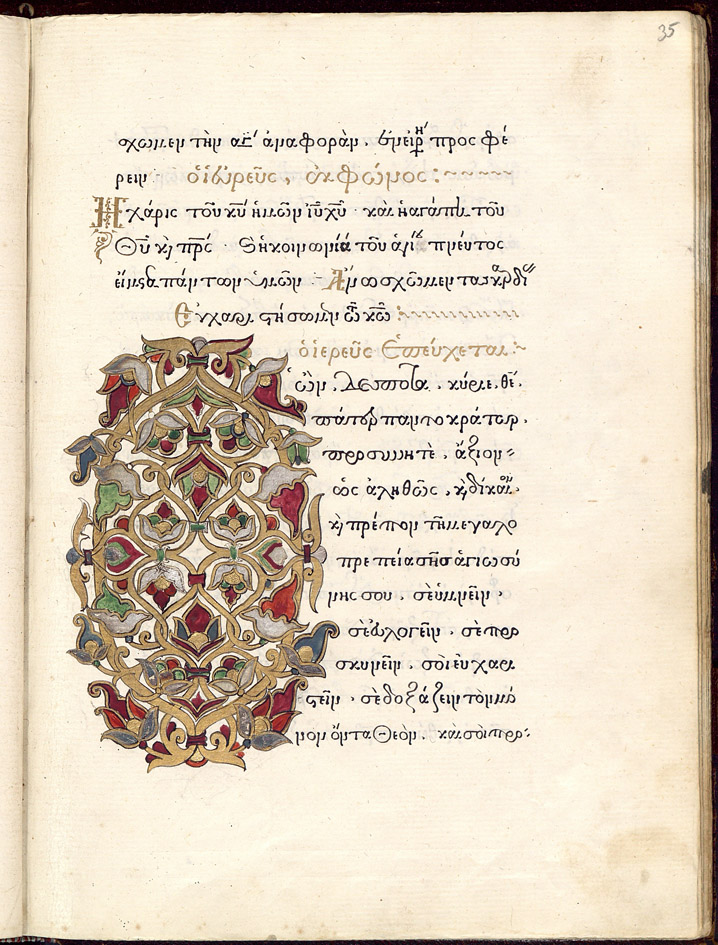 35
σχωμεν τὴν ἁγ´ ἀναφορὰν. ἐν εἰρή προσφέ
ρειν ὁ ἱερεῦς, ἐκφώνως:
Ἡ χάρις τοῦ κ̅υ̅ ἡμῶν ι̅υ̅ χ̅υ̅ · καὶ ἡ ἀγάπη τοῦ
Θ̅υ̅ κ̀ π̅ρ̅ς · Ϗ ἡ κοινωνία τοῦ ἁγίου πνεύτος
εἴη μετὰ πάντων ὑμῶν · Ἄνω σχῶμεν τὰς καρδί
Εὐχαριστήσωμεν τῶ κ̅ω̅
ὁ ἱερεῦς ἐπεύχεται
ὢν, Δέσποτα, κύριε, θέ,
πάτερ παντοκράτωρ,
προσκυνητὲ, ἄξιον
ὡς ἀληθῶς, κ̀ δίκαιον,
κ̀ πρέπον τῆ μεγαλο
πρεπεία τῆς ἁγιωσύ
νης σου, σὲ ὑμνεῖν,
σὲ εὐλογεῖν, σὲ προ
σκυνεῖν, σοὶ εὐχαρι
στεῖν, σὲ δοξάζειν τὸν μό
νον ὄντα Θεὸν, καὶ σοὶ προσ